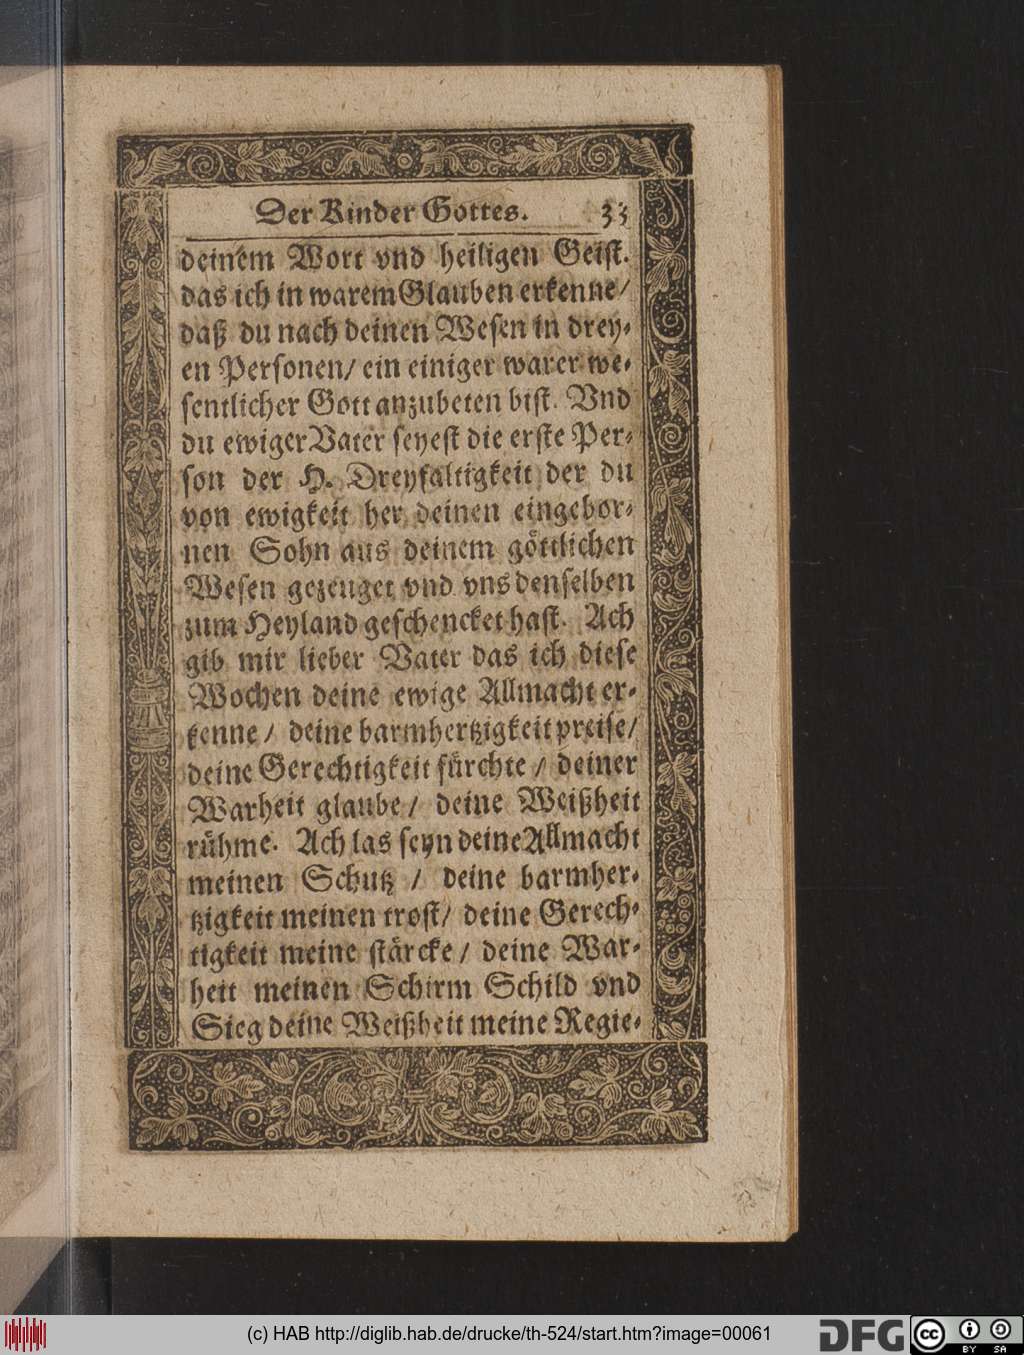 Der Kinder Gottes. 33
deinem Wort vnd heiligen Geist.
das ich in warem Glauben erkenne/
daß du nach deinen Wesen in drey-
en Personen/ ein einiger warer we-
sentlicher Gott anzubeten bist. Vnd
du ewiger Vater seyest die erste Per-
son der H. Dreyfaltigkeit der du
von ewigkeit her deinen eingebor-
nen Sohn aus deinem göttlichen
Wesen gezeuget vnd vns denselben
zum Heyland geschencket hast. Ach
gib mir lieber Vater das ich diese
Wochen deine ewige Allmacht er-
kenne/ deine barmhertzigkeit preise/
deine Gerechtigkeit fürchte/ deiner
Warheit glaube/ deine Weißheit
rühme. Ach las seyn deine Allmacht
meinen Schutz / deine barmher-
tzigkeit meinen trost/ deine Gerech-
tigkeit meine stärcke/ deine War-
heit meinen Schirm Schild vnd
Sieg deine Weißheit meine Regie-
(c) HAB http://diglib.hab.de/drucke/th-524/start.htm?image=00061
DFG cc BY SA